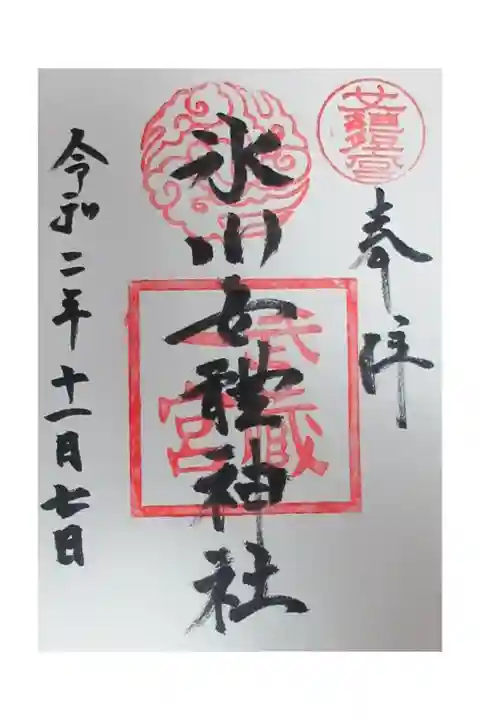 奉拝
女體宮
氷川女體神社
武蔵
一宮
令和二年十一月七日